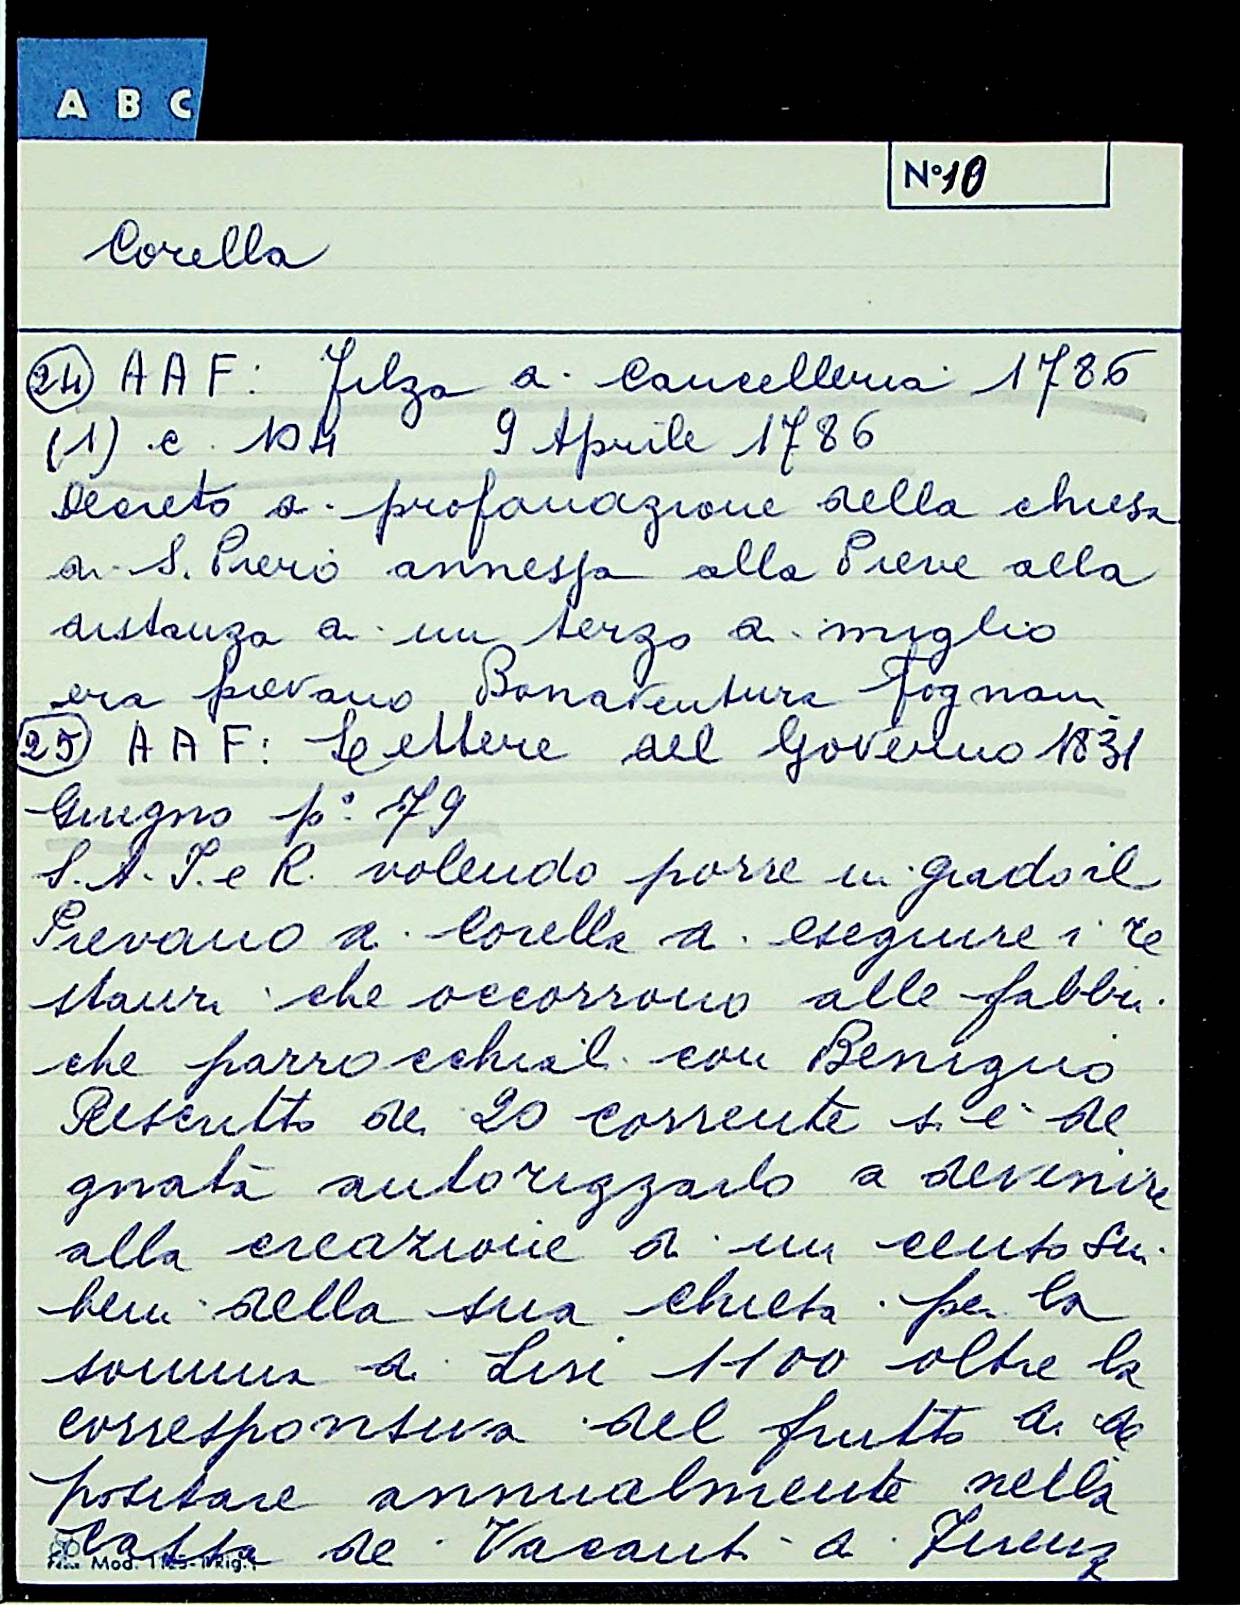 A B C
N° 10
Corella
24 AAF: Filza di Cancelleria 1786
(1) c. 104 9 Aprile 1786
Decreto di profanazione della chiesa
di S. Piero annessa alla Pieve alla
distanza di un terzo di miglio
era pievano Bonaventura Fognani
25 AAF: Lettere del Governo 1831
Giugno p° 79
S. A. I. e R. volendo porre in grado il
Pievano di Corella di eseguire i re
stauri che occorrono alle fabbri.
che parrocchiali con Benigno
Rescritto de 20 corrente si è de
gnata autorizzarlo a devenire
alla creazione di un cento su.
beni della sua chiesa per la
somma di Lire 1100 oltre la
corresponsiva del frutto di de
positare annualmente nella
Cassa de Vacanti di Firenz
Mod. Rig.